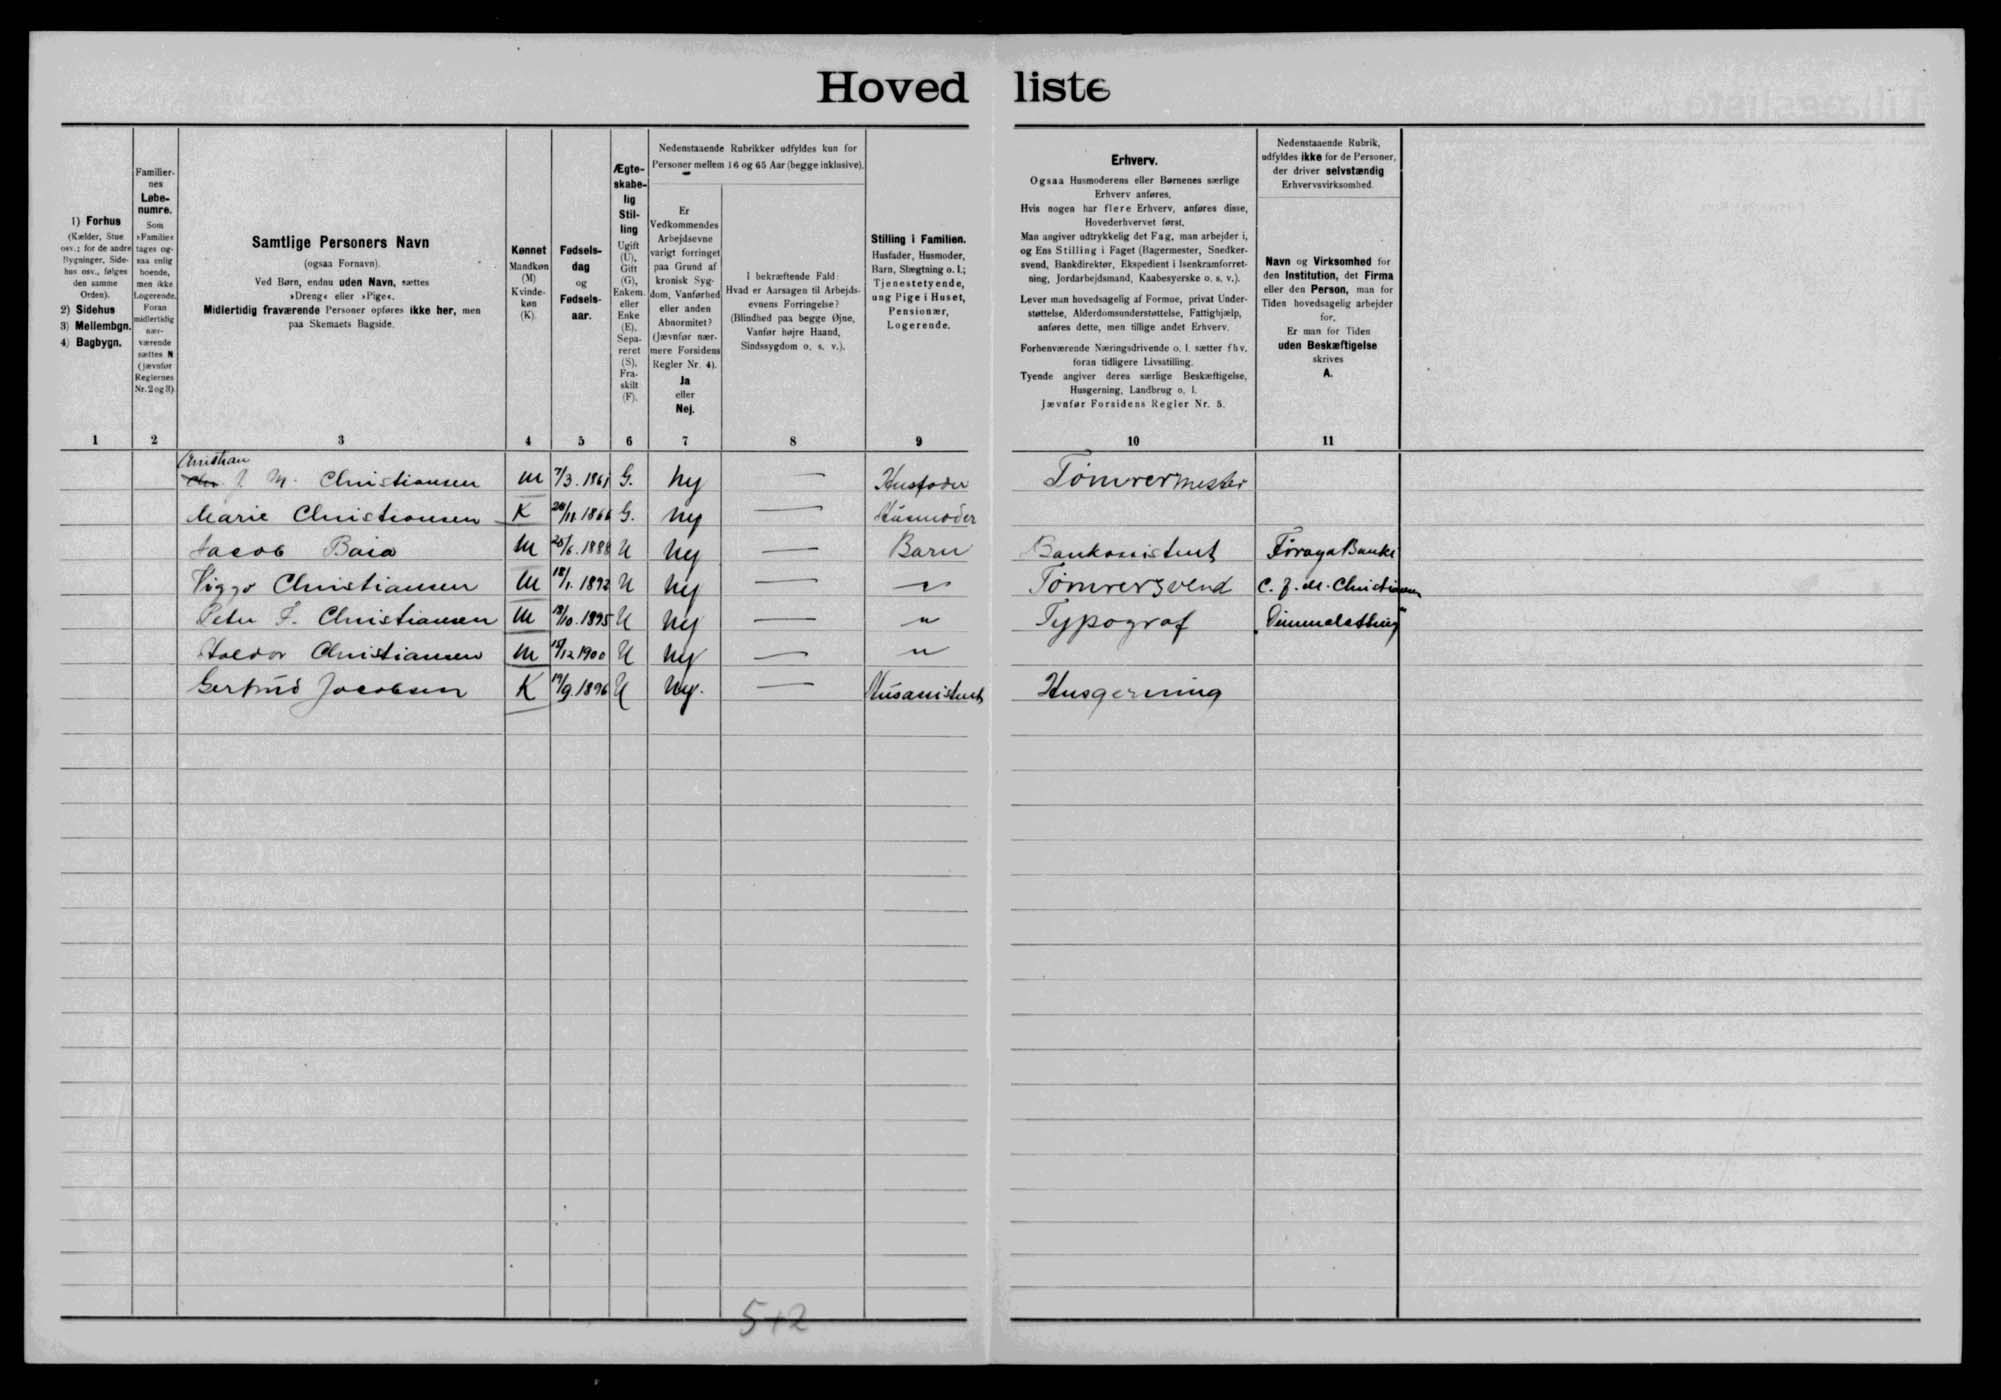 Hoved liste
1) Forhus
(Kælder, Stue
osv.; for de andre
Bygninger, Side-
hus osv., følges
den samme
Orden).
2) Sidehus
3) Mellembgn.
4) Bagbygn.
Familier-
nes
Løbe-
numre.
Som
»Familie«
tages og-
saa enlig
boende,
men ikke
Logerende.
Foran
midlertidig
nær-
værende
sættes N
(jævnfør
Reglernes
Nr. 2 og 3)
Samtlige Personers Navn
(ogsaa Fornavn).
Ved Børn, endnu uden Navn, sættes
»Dreng« eller »Pige«.
Midlertidig fraværende Personer opføres ikke her, men
paa Skemaets Bagside.
Kønnet
Mandkøn
(M)
Kvinde-
køn
(K).
Fødsels-
dag
og
Fødsels-
aar.
Ægte-
skabe-
lig
Stil-
ling
Ugift
(U),
Gift
(G),
Enkem.
eller
Enke
(E),
Sepa-
reret
(S),
Fra-
skilt
(F).
Nedenstaaende Rubrikker udfyldes kun for
Personer mellem 16 og 65 Aar (begge inklusive).
Er
Vedkommendes
Arbejdsevne
varigt forringet
paa Grund af
kronisk Syg-
dom, Vanførhed
eller anden
Abnormitet?
(Jævnfør nær-
mere Forsidens
Regler Nr. 4).
Ja
eller
Nej.
I bekræftende Fald:
Hvad er Aarsagen til Arbejds-
evnens Forringelse?
(Blindhed paa begge Øjne,
Vanfør højre Haand,
Sindssygdom o. s. v.).
Stilling i Familien.
Husfader, Husmoder,
Barn, Slægtning o. l.;
Tjenestetyende,
ung Pige i Huset,
Pensionær,
Logerende.
Erhverv.
Ogsaa Husmoderens eller Børnenes særlige
Erhverv anføres.
Hvis nogen har flere Erhverv, anføres disse,
Hovederhvervet først.
Man angiver udtrykkelig det Fag, man arbejder i,
og Ens Stilling i Faget (Bagermester, Snedker-
svend, Bankdirektør, Ekspedient i Isenkramforret-
ning, Jordarbejdsmand, Kaabesyerske o. s. v.).
Lever man hovedsagelig af Formue, privat Under-
støttelse, Alderdomsunderstøttelse, Fattighjælp,
anføres dette, men tillige andet Erhverv.
Forhenværende Næringsdrivende o. l. sætter fhv.
foran tidligere Livsstilling.
Tyende angiver deres særlige Beskæftigelse,
Husgerning, Landbrug o. l.
Jævnfør Forsidens Regler Nr. 5.
Nedenstaaende Rubrik,
udfyldes ikke for de Personer,
der driver selvstændig
Erhvervsvirksomhed.
Navn og Virksomhed for
den Institution, det Firma
eller den Person, man for
Tiden hovedsagelig arbejder
for.
Er man for Tiden
uden Beskæftigelse
skrives
A.
1 2 3 4 5 6 7 8 9 10 11
Christian
J. M. Christiansen M 7/3. 1861 G. Nej — Husfader Tømrermester
Marie Christiansen K 28/11. 1866 G. Nej — Husmoder
Jacob Baia M 1888 U Nej — Barn Bankassistent Føroya Banki
Viggo Christiansen M 18/1. 1892 U Nej — " Tømrersvend C. J. M. Christiansen
Peter F. Christiansen M /10. 1895 U Nej — " Typograf „Dimmalætting"
Haldor Christiansen M /12 1900 U Nej — "
Gertrud Jacobsen K 19/9. 1896 U Nej. — Husassistent Husgerning
5+2